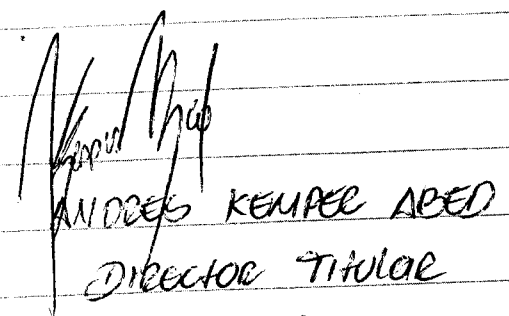 ANDRES KEMPER ABED
DIRECTOR TITULAR